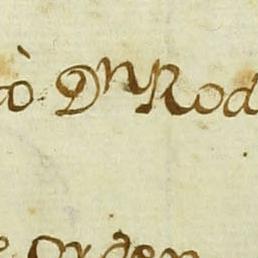 Dn Rod
orden